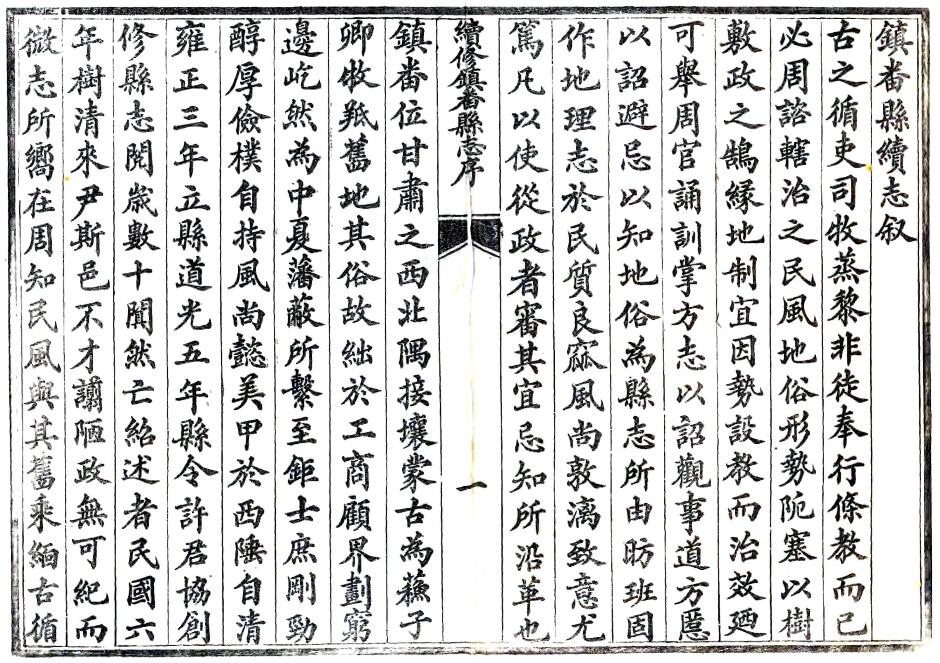 鎮番縣續志叙
古之循吏司牧蒸黎非徒奉行條教而已
必周諮轄治之民風地俗形勢阨塞以樹
敷政之鵠緣地制宜因勢設教而治效廼
可舉周官誦訓掌方志以詔觀事道方慝
以詔避忌以知地俗為縣志所由昉班固
作地理志於民質良窳風尚敦漓致意尤
篤凡以使從政者審其宜忌知所沿革也
續修鎮番縣志序
一
鎮番位甘肅之西北隅接壤蒙古為蘇子
卿牧羝舊地其俗故絀於工商顧界劃窮
邊屹然為中夏藩蔽所繫至鉅士庶剛勁
醇厚儉樸自持風尚懿美甲於西陲自清
雍正三年立縣道光五年縣令許君協創
修縣志閱歲數十闃然亡紹述者民國六
年樹清來尹斯邑不才譾陋政無可紀而
微志所嚮在周知民風與其舊乘緬古循